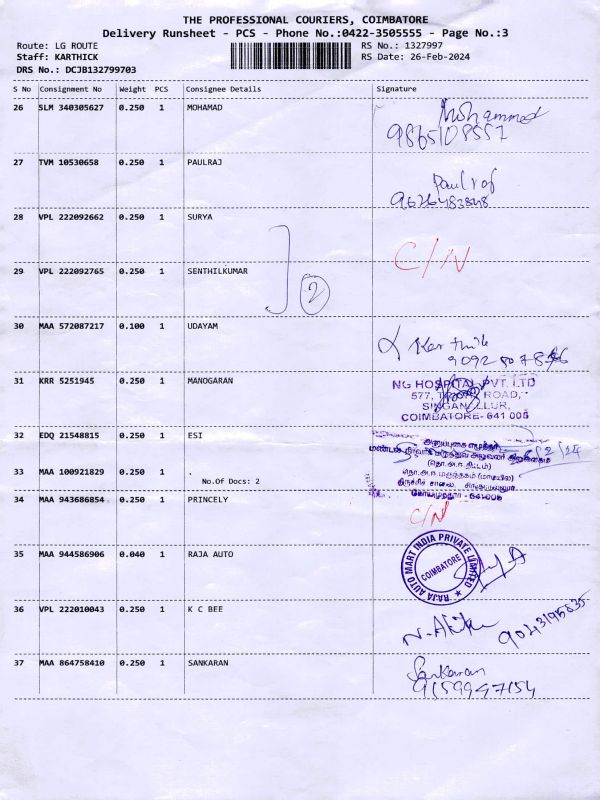 THE PROFESSIONAL COURIERS, COIMBATORE
Delivery Runsheet - PCS - Phone No.:0422-3505555 - Page No.:3
Route: LG ROUTE RS No.: 1327997
Staff: KARTHICK RS Date: 26-Feb-2024
DRS No.: DCJB132799703
S No Consignment No Weight PCS Consignee Details Signature
26 SLM 340305627 0.250 1 MOHAMAD Mohammed
9865108557
27 TVM 10530658 0.250 1 PAULRAJ Paulraj
9626483848
28 VPL 222092662 0.250 1 SURYA
C/N
29 VPL 222092765 0.250 1 SENTHILKUMAR
2
30 MAA 572087217 0.100 1 UDAYAM
9092807846
31 KRR 5251945 0.250 1 MANOGARAN NG HOSPITAL PVT. LTD
577, ROAD,
SINGANALLUR,
COIMBATORE- 641 005
32 EDQ 21548815 0.250 1 ESI
33 MAA 100921829 0.250 1 .
No.Of Docs: 2
கோயமுத்தூர் - 641005
34 MAA 943686854 0.250 1 PRINCELY C/N
35 MAA 944586906 0.040 1 RAJA AUTO
RAJA AUTO MART INDIA PRIVATE LIMITED
COIMBATORE
36 VPL 222010043 0.250 1 K C BEE
9043195635
37 MAA 864758410 0.250 1 SANKARAN Sankaran
9159947154